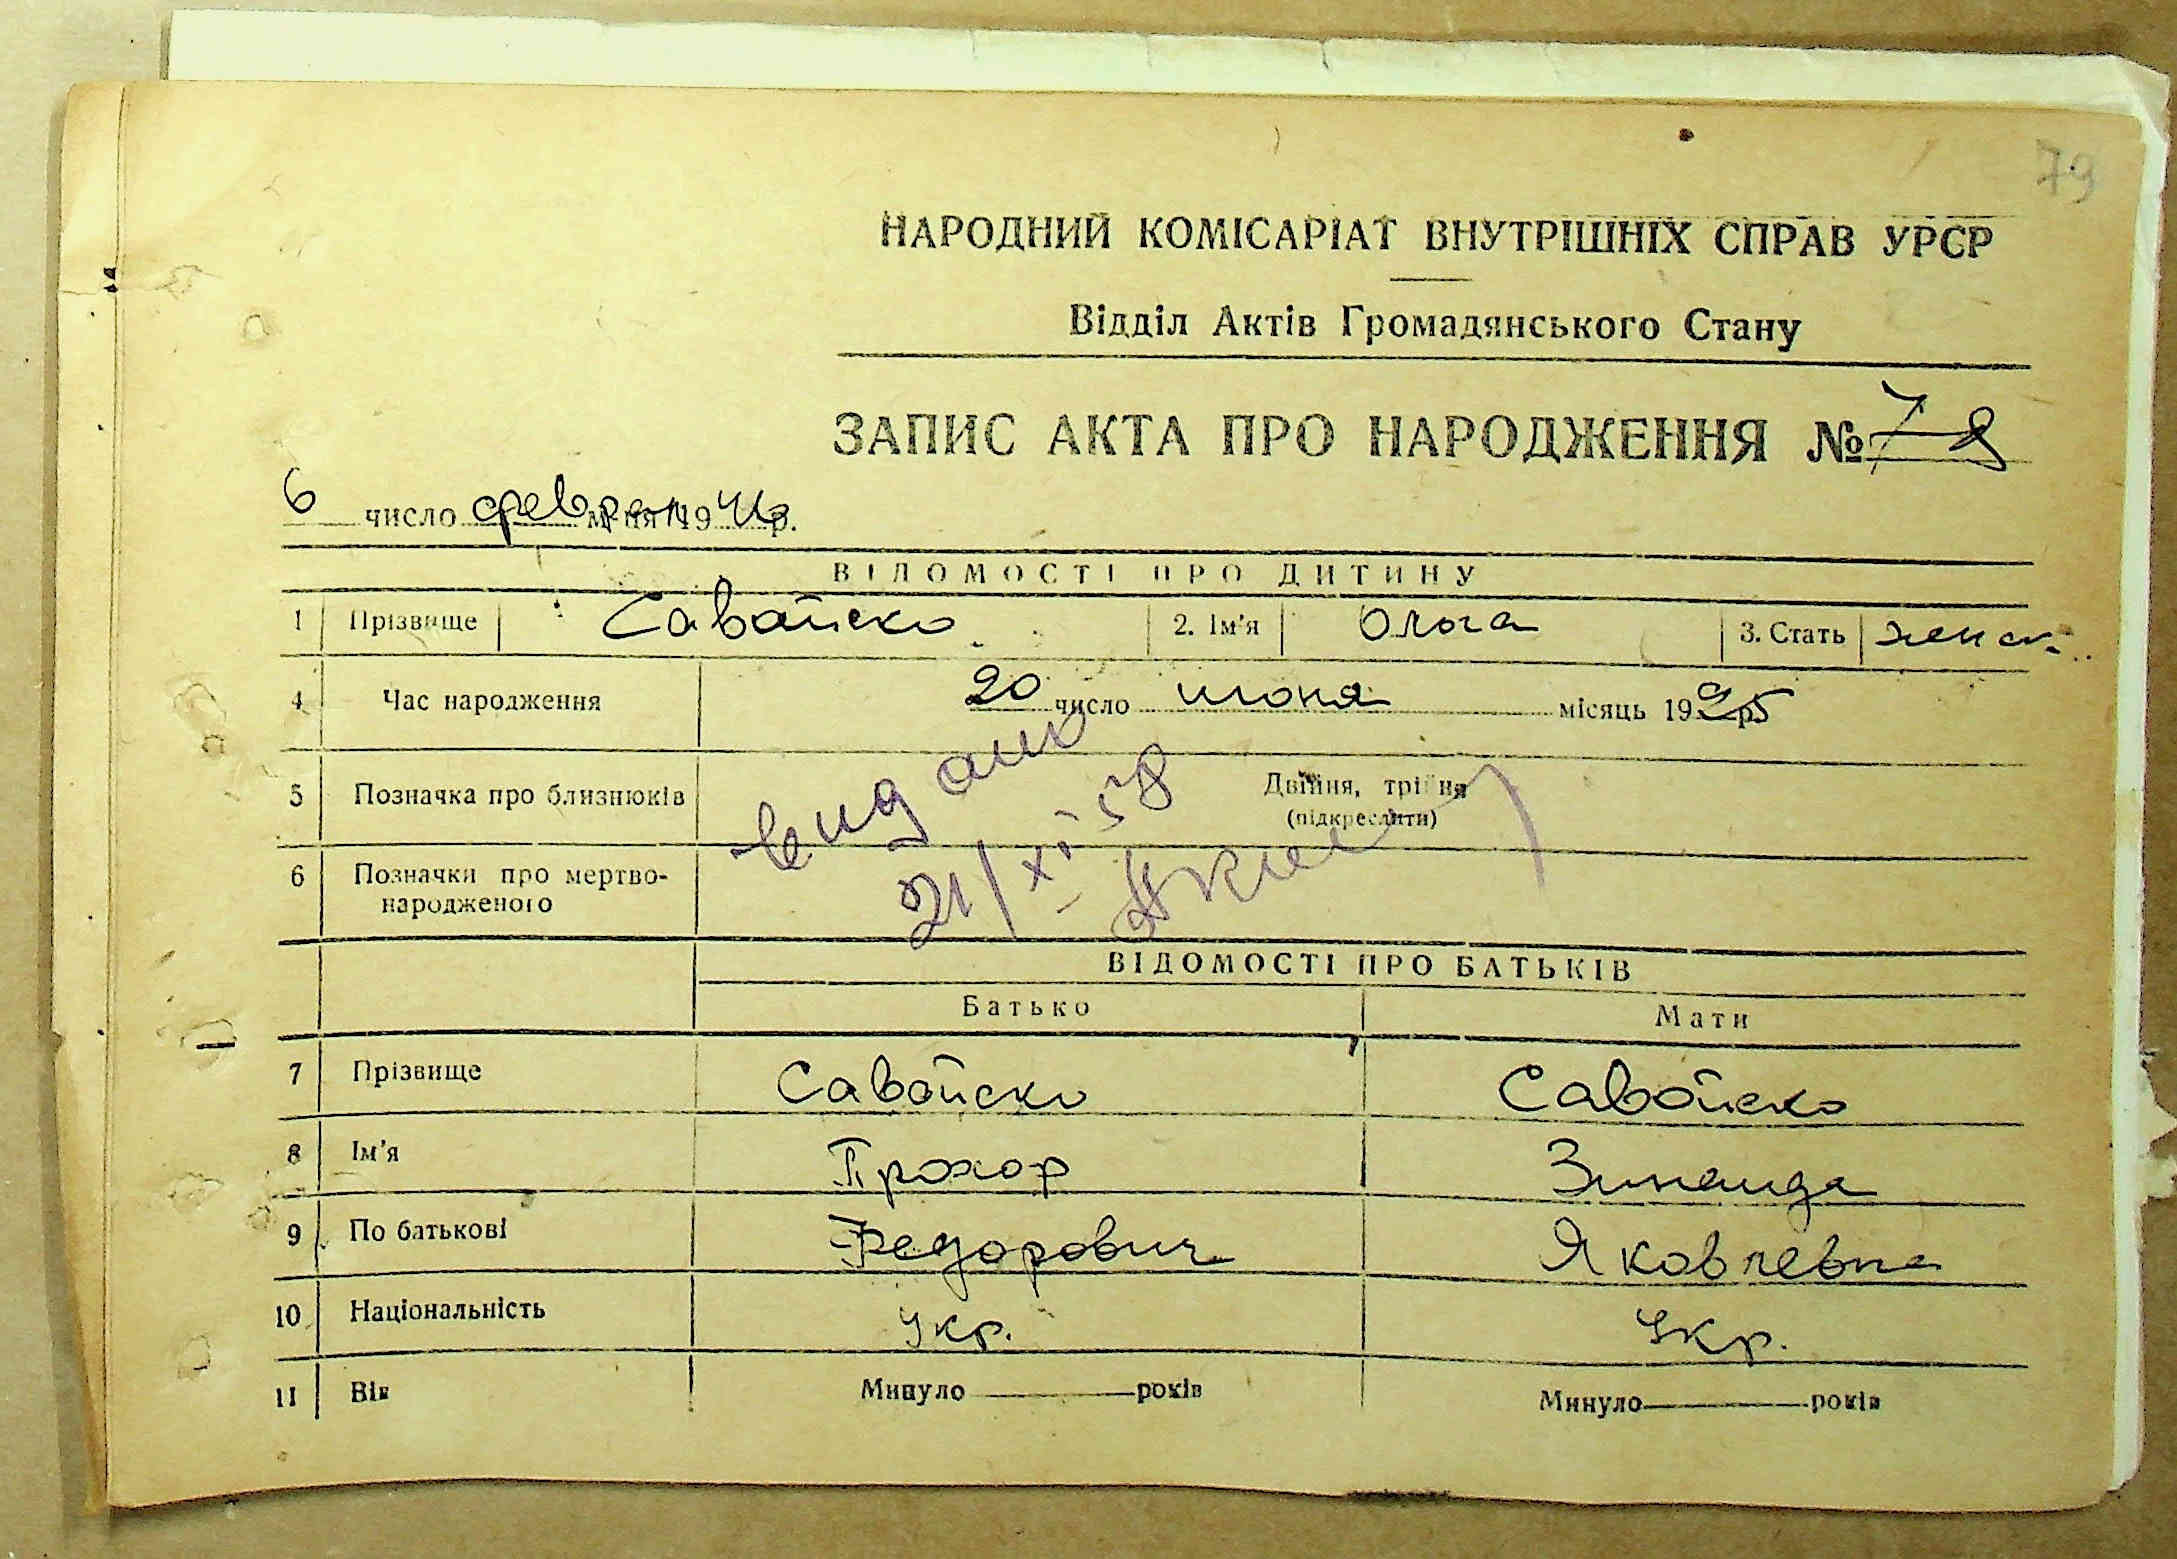 79
НАРОДНИЙ КОМІСАРІАТ ВНУТРІШНІХ СПРАВ УРСР
Відділ Актів Громадянського Стану
ЗАПИС АКТА ПРО НАРОДЖЕННЯ № 78
6 число февраля м-ця 1941 р.
ВІДОМОСТІ ПРО ДИТИНУ
1 Прізвище Савойско 2. Ім'я Ольга 3. Стать женск.
4 Час народження 20 число июня місяць 1925 р.
5 Позначка про близнюків Двійня, трійня
(підкреслити)
6 Позначки про мертво-
народженого
видано
21/XI 58
ВІДОМОСТІ ПРО БАТЬКІВ
Батько Мати
7 Прізвище Савойско Савойско
8 Ім'я Прохор Зинаида
9 По батькові Федорович Яковлевна
10 Національність Укр. Укр.
11 Вік Минуло років Минуло років